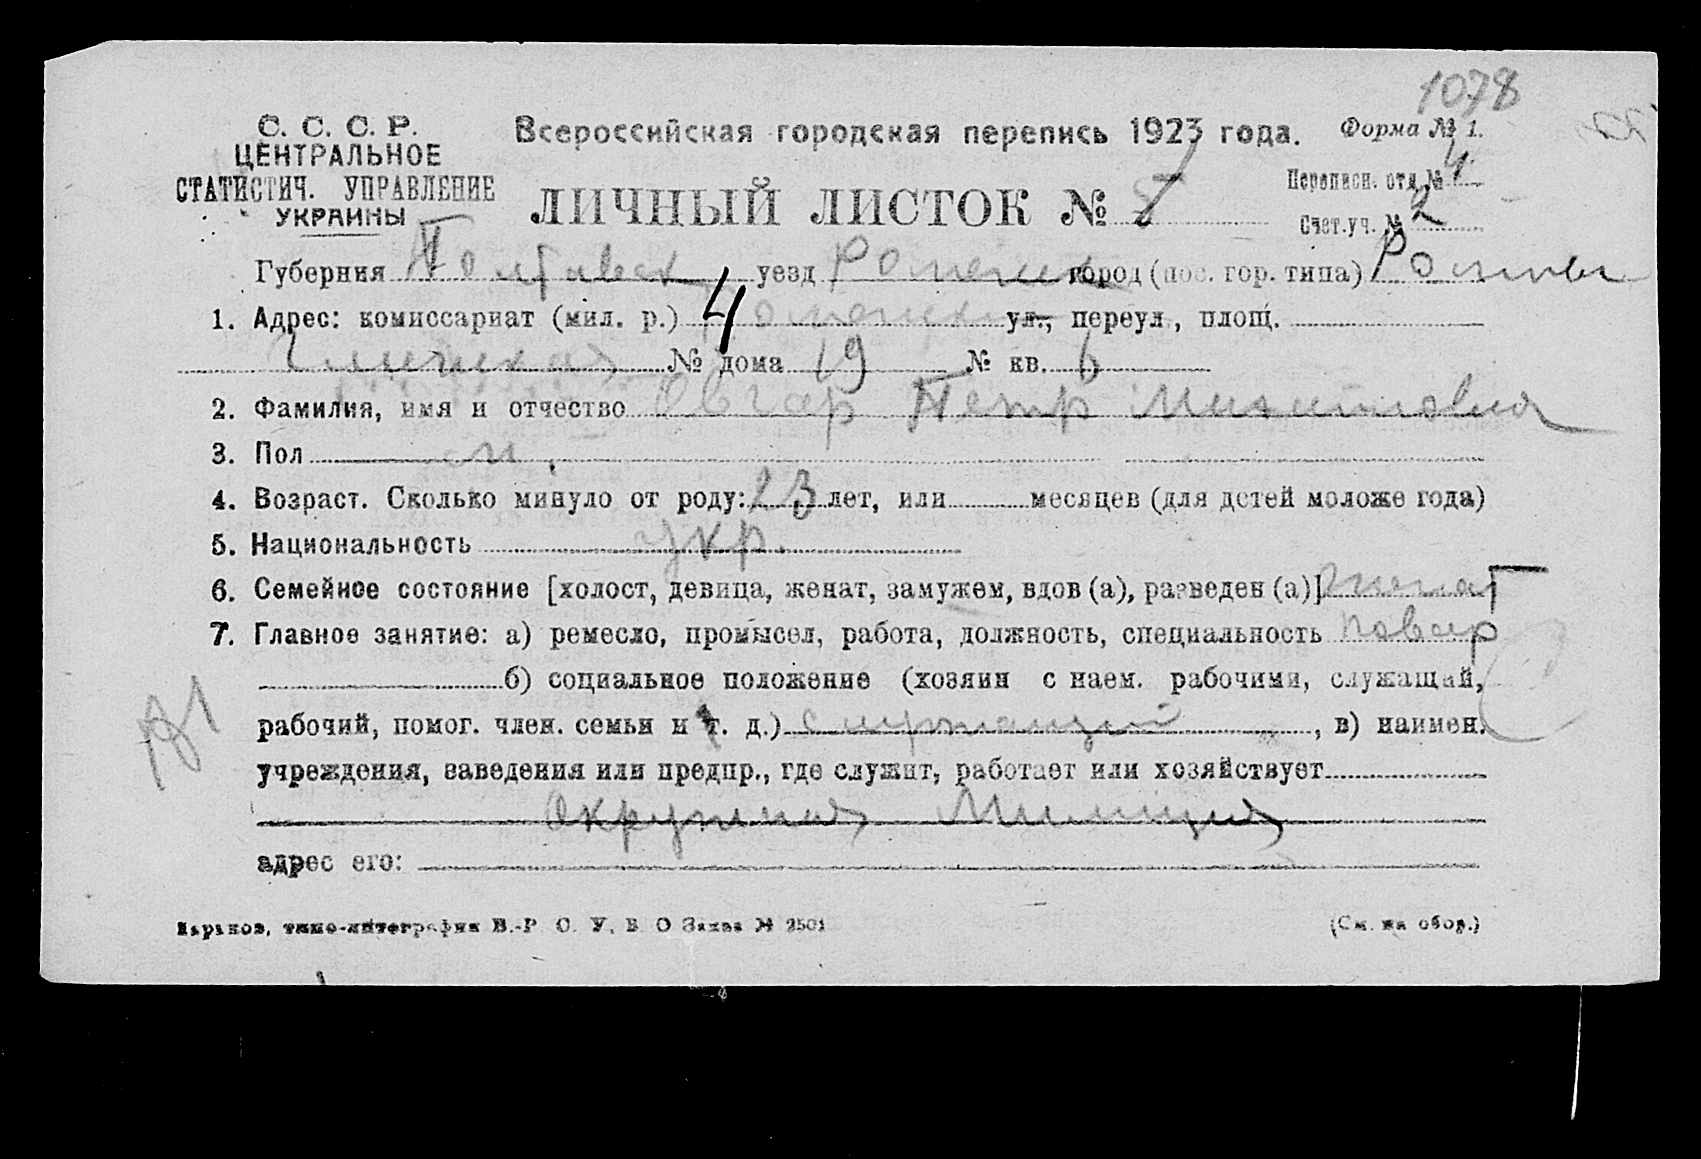 1078
С. С. С. Р.
ЦЕНТРАЛЬНОЕ
СТАТИСТИЧ. УПРАВЛЕНИЕ
УКРАИНЫ
Всероссийская городская перепись 1923 года.
Форма № 1.
ЛИЧНЫЙ ЛИСТОК № 5
Переписн. отд. № 4
Счет. уч. № 2
Губерния Полтавск уезд Роменск город (пос. гор. типа) Ромны
1. Адрес: комиссариат (мил. р.) 4 Роменски ул., переул., площ.
№ дома 19 № кв. 6
2. Фамилия, имя и отчество Овчар Петр
3. Пол м.
4. Возраст. Сколько минуло от роду: 23 лет, или месяцев (для детей моложе года)
5. Национальность укр.
6. Семейное состояние [холост, девица, женат, замужем, вдов (а), разведен (а)] женат
7. Главное занятие: а) ремесло, промысел, работа, должность, специальность повар
б) социальное положение (хозяин с наем. рабочими, служащий,
рабочий, помог. член. семьи и т. д.) служащий, в) наимен.
учреждения, заведения или предпр., где служит, работает или хозяйствует
Окружная Милиция
адрес его:
Харьков, типо-литография В.-Р. С. У. В. О Заказ № 2501
(См. на обор.)